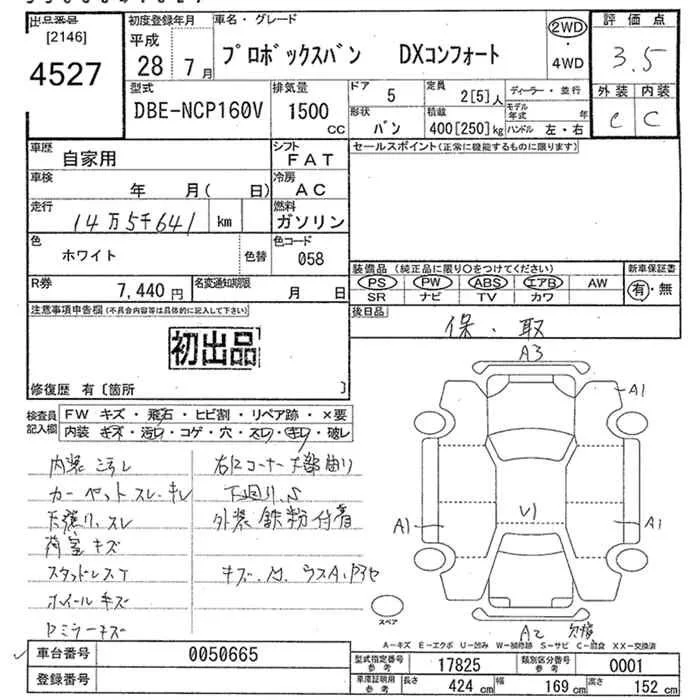 出品番号
[2146]
4527
初度登録年月
平成
28年 7月
車名・グレード
プロボックスバン DXコンフォート
2WD
・
4WD
評価点
3.5
外装 内装
C C
型式
DBE-NCP160V
排気量
1500
CC
ドア 5
定員 2[5]人
ディーラー・並行
モデル年式 年
形状 バン
積載 400[250]kg
ハンドル 左・右
車歴
自家用
シフト
FAT
車検
年 月( 日)
冷房
AC
走行
14万5千641 km
燃料
ガソリン
色
ホワイト
色替
色コード
058
R券
7,440 円
名変通知期限
月 日
セールスポイント(正常に機能するものに限ります)
装備品 (純正品に限り○をつけてください)
新車保証書
PS PW ABS エアB AW
有・無
SR ナビ TV カワ
後日品
保・取
注意事項申告欄(不具合内容等は具体的に記入して下さい)
初出品
修復歴 有〔箇所 〕
検査員記入欄
FW キズ・飛石・ヒビ割・リペア跡・×要
内装 キズ・汚レ・コゲ・穴・スレ・キレ・破レ
内装ヨゴレ
カーペットスレ・キレ
天張リ、スレ
荷室キズ
スタッドレスT
ホイールキズ
Dミラーキズ
右Rコーナー下部曲り
下回りS
外装鉄粉付着
キズ・凹
A3
A1
A1
A1
U1
A2
スペア
A-キズ E-エクボ U-凹み W-補修跡 S-サビ C-腐食 XX-交換済
車台番号 0050665
登録番号
型式指定番号
参考
17825
類別区分番号
参考
0001
車庫証明用
参考
長さ 424 cm
幅 169 cm
高さ 152 cm